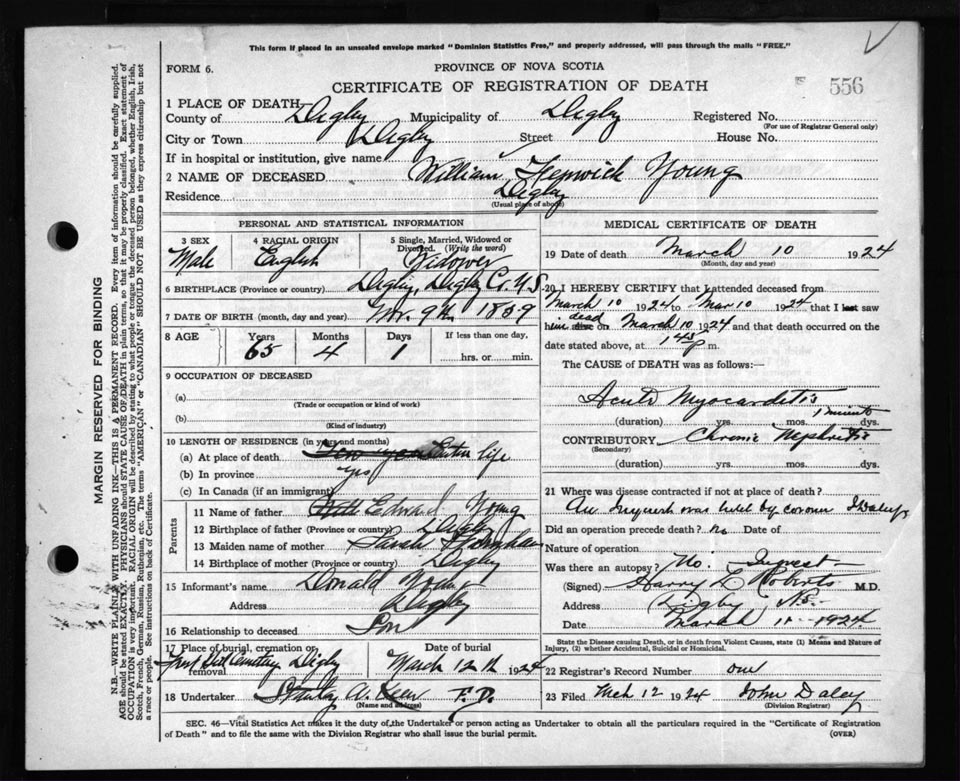 This form if placed in an unsealed envelope marked "Dominion Statistics Free," and properly addressed, will pass through the mails "FREE."
FORM 6.
PROVINCE OF NOVA SCOTIA
CERTIFICATE OF REGISTRATION OF DEATH
556
1 PLACE OF DEATH—
County of Digby Municipality of Digby Registered No.
(For use of Registrar General only)
City or Town Digby Street House No.
If in hospital or institution, give name
2 NAME OF DECEASED William Fenwick Young
Residence Digby
(Usual place of abode)
PERSONAL AND STATISTICAL INFORMATION
3 SEX Male
4 RACIAL ORIGIN English
5 Single, Married, Widowed or Divorced. (Write the word) Widower
6 BIRTHPLACE (Province or country) Digby, Digby Co. N.S.
7 DATE OF BIRTH (month, day and year) Nov. 9th 1859
8 AGE Years 65 Months 4 Days 1 If less than one day, hrs. or min.
9 OCCUPATION OF DECEASED
(a)
(Trade or occupation or kind of work)
(b)
(Kind of industry)
10 LENGTH OF RESIDENCE (in years and months)
(a) At place of death Entire life
(b) In province yes
(c) In Canada (if an immigrant)
Parents
11 Name of father Edward Young
12 Birthplace of father (Province or country) Digby
13 Maiden name of mother Sarah
14 Birthplace of mother (Province or country) Digby
15 Informant's name Donald Young
Address Digby
16 Relationship to deceased Son
17 Place of burial, cremation or removal Digby
Date of burial March 12th 1924
18 Undertaker Stanley A. F.D.
(Name and address)
MEDICAL CERTIFICATE OF DEATH
19 Date of death March 10 1924
(Month, day and year)
20 I HEREBY CERTIFY that I attended deceased from
March 10 1924 to Mar 10 1924 that I last saw
him dead on March 10 1924 and that death occurred on the
date stated above, at 1 45 p m.
The CAUSE of DEATH was as follows:—
Acute Myocarditis
(duration) yrs. mos. dys.
CONTRIBUTORY Chronic Nephritis
(Secondary)
(duration) yrs. mos. dys.
21 Where was disease contracted if not at place of death?
An Inquest was held by coroner
Did an operation precede death? no Date of
Nature of operation
Was there an autopsy? No. Inquest
(Signed) Harry L Roberts M.D.
Address Digby N.S.
Date March 11 1924
State the Disease causing Death, or in death from Violent Causes, state (1) Means and Nature of Injury, (2) whether Accidental, Suicidal or Homicidal.
22 Registrar's Record Number one
23 Filed Mch 12 1924 John Daley
(Division Registrar)
SEC. 46—Vital Statistics Act makes it the duty of the Undertaker or person acting as Undertaker to obtain all the particulars required in the "Certificate of Registration
of Death" and to file the same with the Division Registrar who shall issue the burial permit.
(OVER)
MARGIN RESERVED FOR BINDING
N.B.—WRITE PLAINLY WITH UNFADING INK—THIS IS A PERMANENT RECORD. Every item of information should be carefully supplied.
AGE should be stated EXACTLY. PHYSICIANS should STATE CAUSE OF DEATH in plain terms, so that it may be properly classified. Exact statement of
OCCUPATION is very important. RACIAL ORIGIN will be described by stating to what people or tongue the deceased person belonged, whether English, Irish,
Scotch, French, German, Russian, Ruthenian, etc. The terms "AMERICAN" or "CANADIAN" SHOULD NOT BE USED as they express citizenship but not
a race or people. See instructions on back of Certificate.